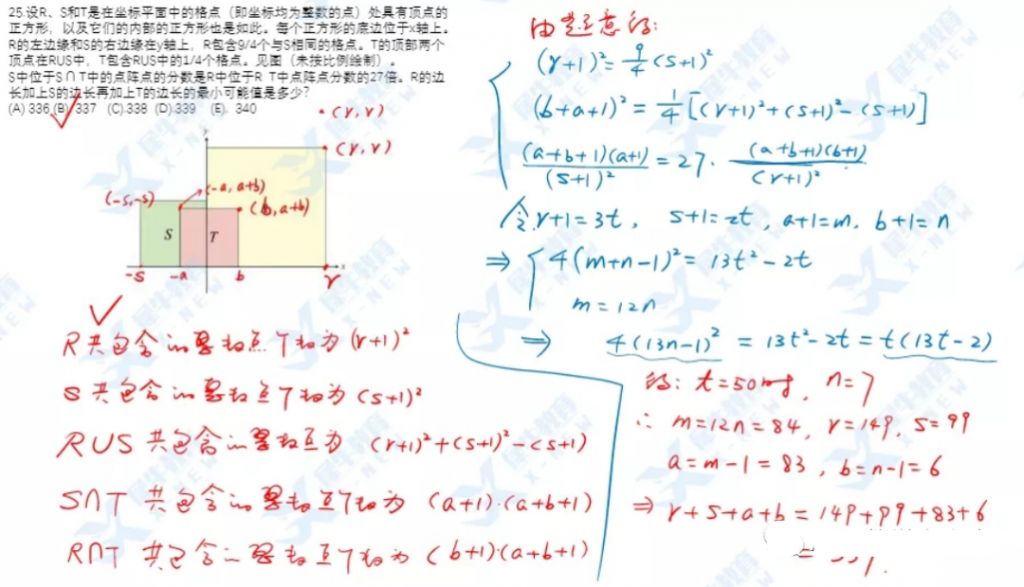 25.设R、S和T是在坐标平面中的格点（即坐标均为整数的点）处具有顶点的
正方形，以及它们的内部的正方形也是如此。每个正方形的底边位于x轴上。
R的左边缘和S的右边缘在y轴上，R包含9/4个与S相同的格点。T的顶部两个
顶点在RUS中，T包含RUS中的1/4个格点。见图（未按比例绘制）。
S中位于S∩T中的点阵点的分数是R中位于R T中点阵点分数的27倍。R的边
长加上S的边长再加上T的边长的最小可能值是多少?
(A) 336 (B) 337 (C).338 (D).339 (E). 340
(r,r)
(r,r)
(-s,-s)
(-a,a+b)
(b,a+b)
S
T
-s
-a
b
r
x
y
R共包含的为(r+1)²
S共包含的为(s+1)²
RUS共包含的为 (r+1)²+(s+1)²-(s+1)
S∩T 共包含的为 (a+1)·(a+b+1)
R∩T 共包含的为 (b+1)·(a+b+1)
由题意得:
(r+1)²=9/4(s+1)²
(b+a+1)²=1/4[(r+1)²+(s+1)²-(s+1)]
(a+b+1)(a+1)/(s+1)²=27·(a+b+1)(b+1)/(r+1)²
令r+1=3t, s+1=2t, a+1=m, b+1=n
⇒ 4(m+n-1)²=13t²-2t
m=12n
⇒ 4(13n-1)²=13t²-2t=t(13t-2)
得: t=50时, n=7
∴ m=12n=84, r=149, s=99
a=m-1=83, b=n-1=6
⇒ r+s+a+b=149+99+83+6
犀牛教育
X-NEW